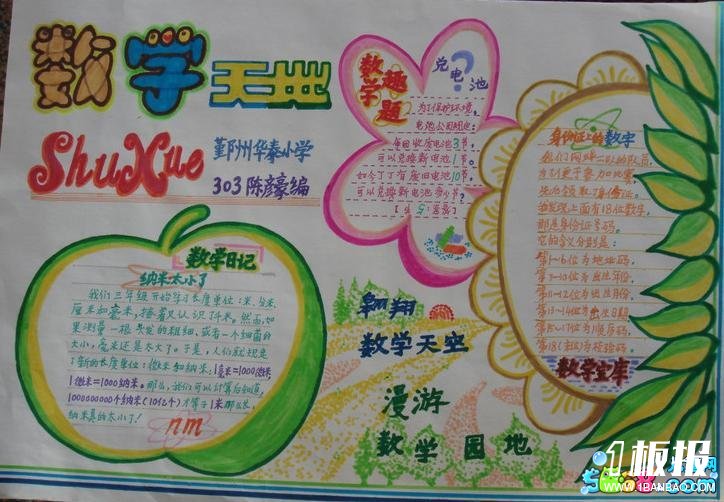 数学天地
ShuXue
鄞州华泰小学
303 陈彦豪编
数学趣题
兑电池
?
为了保护环境,
电池公司规定:
每回收废电池3节
可以兑换新电池1节。
如今丁丁有废旧电池10节
可以兑换新电池多少节?
[答案: 5节]
身份证上的数字
我们网球二队的队员
为了更好参加比赛,
先后领取了身份证。
我发现上面有18位数字,
那是身份证号码。
它的含义分别是:
第1-6位为地址码,
第7-10位为出生年份,
第11-12位为出生月份,
第13-14位为出生日期,
第15-17位为顺序码,
第18位为校验码。
数学宝库
数学日记
纳米太小了
我们三年级开始学习长度单位:米、分米、
厘米和毫米,接着又认识了千米。然而,如
果测量一根头发的粗细,或者一个细菌的
大小,毫米还是太大了。于是,人们就规定
了新的长度单位:微米和纳米,1毫米=1000微米,
1微米=1000纳米。那么,我们可以计算后知道,
1000000000个纳米(10亿个)才等于1米那么长,
纳米真的太小了!
nm
翱翔
数学天空
漫游
数学园地
1板报
WWW.1BANBAO.COM